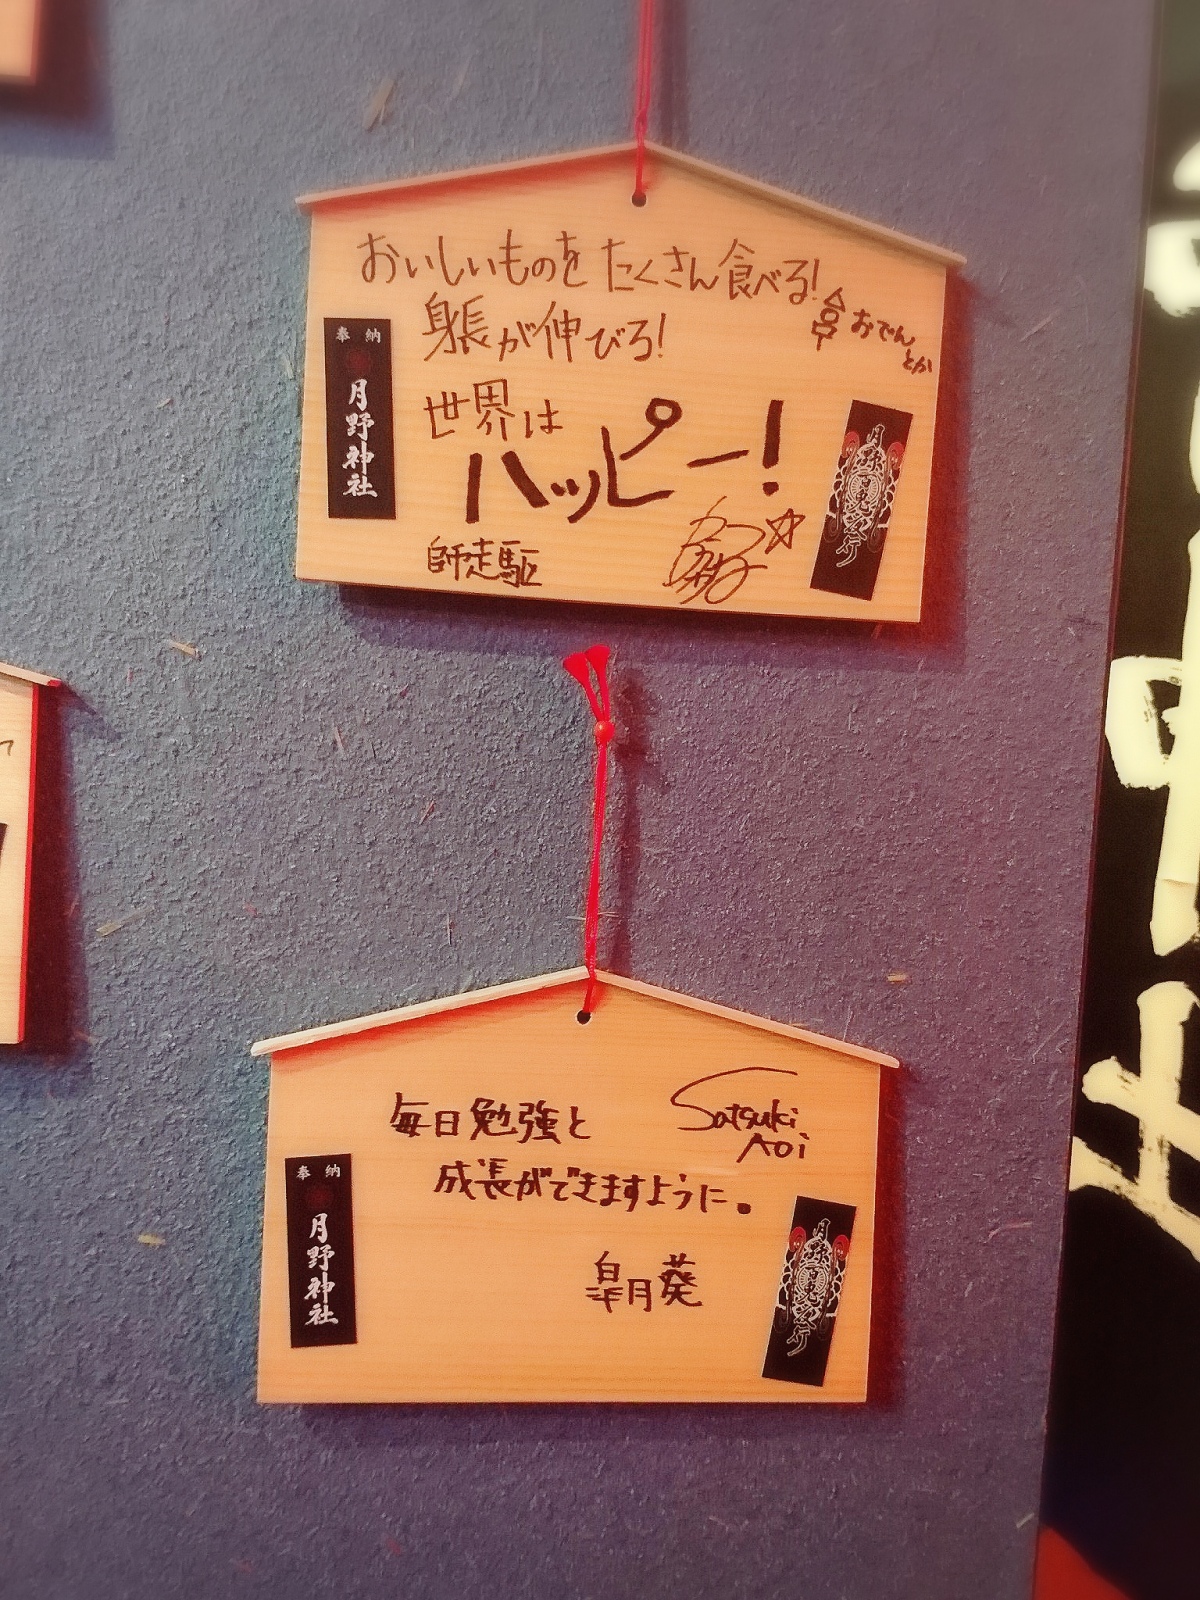 おいしいものをたくさん食べる!
おでん
とか
身長が伸びろ!
世界は
ハッピー!
師走駆
奉納
月野神社
月野百鬼夜行
毎日勉強と
成長ができますように。
Satsuki
Aoi
皐月葵
奉納
月野神社
月野百鬼夜行